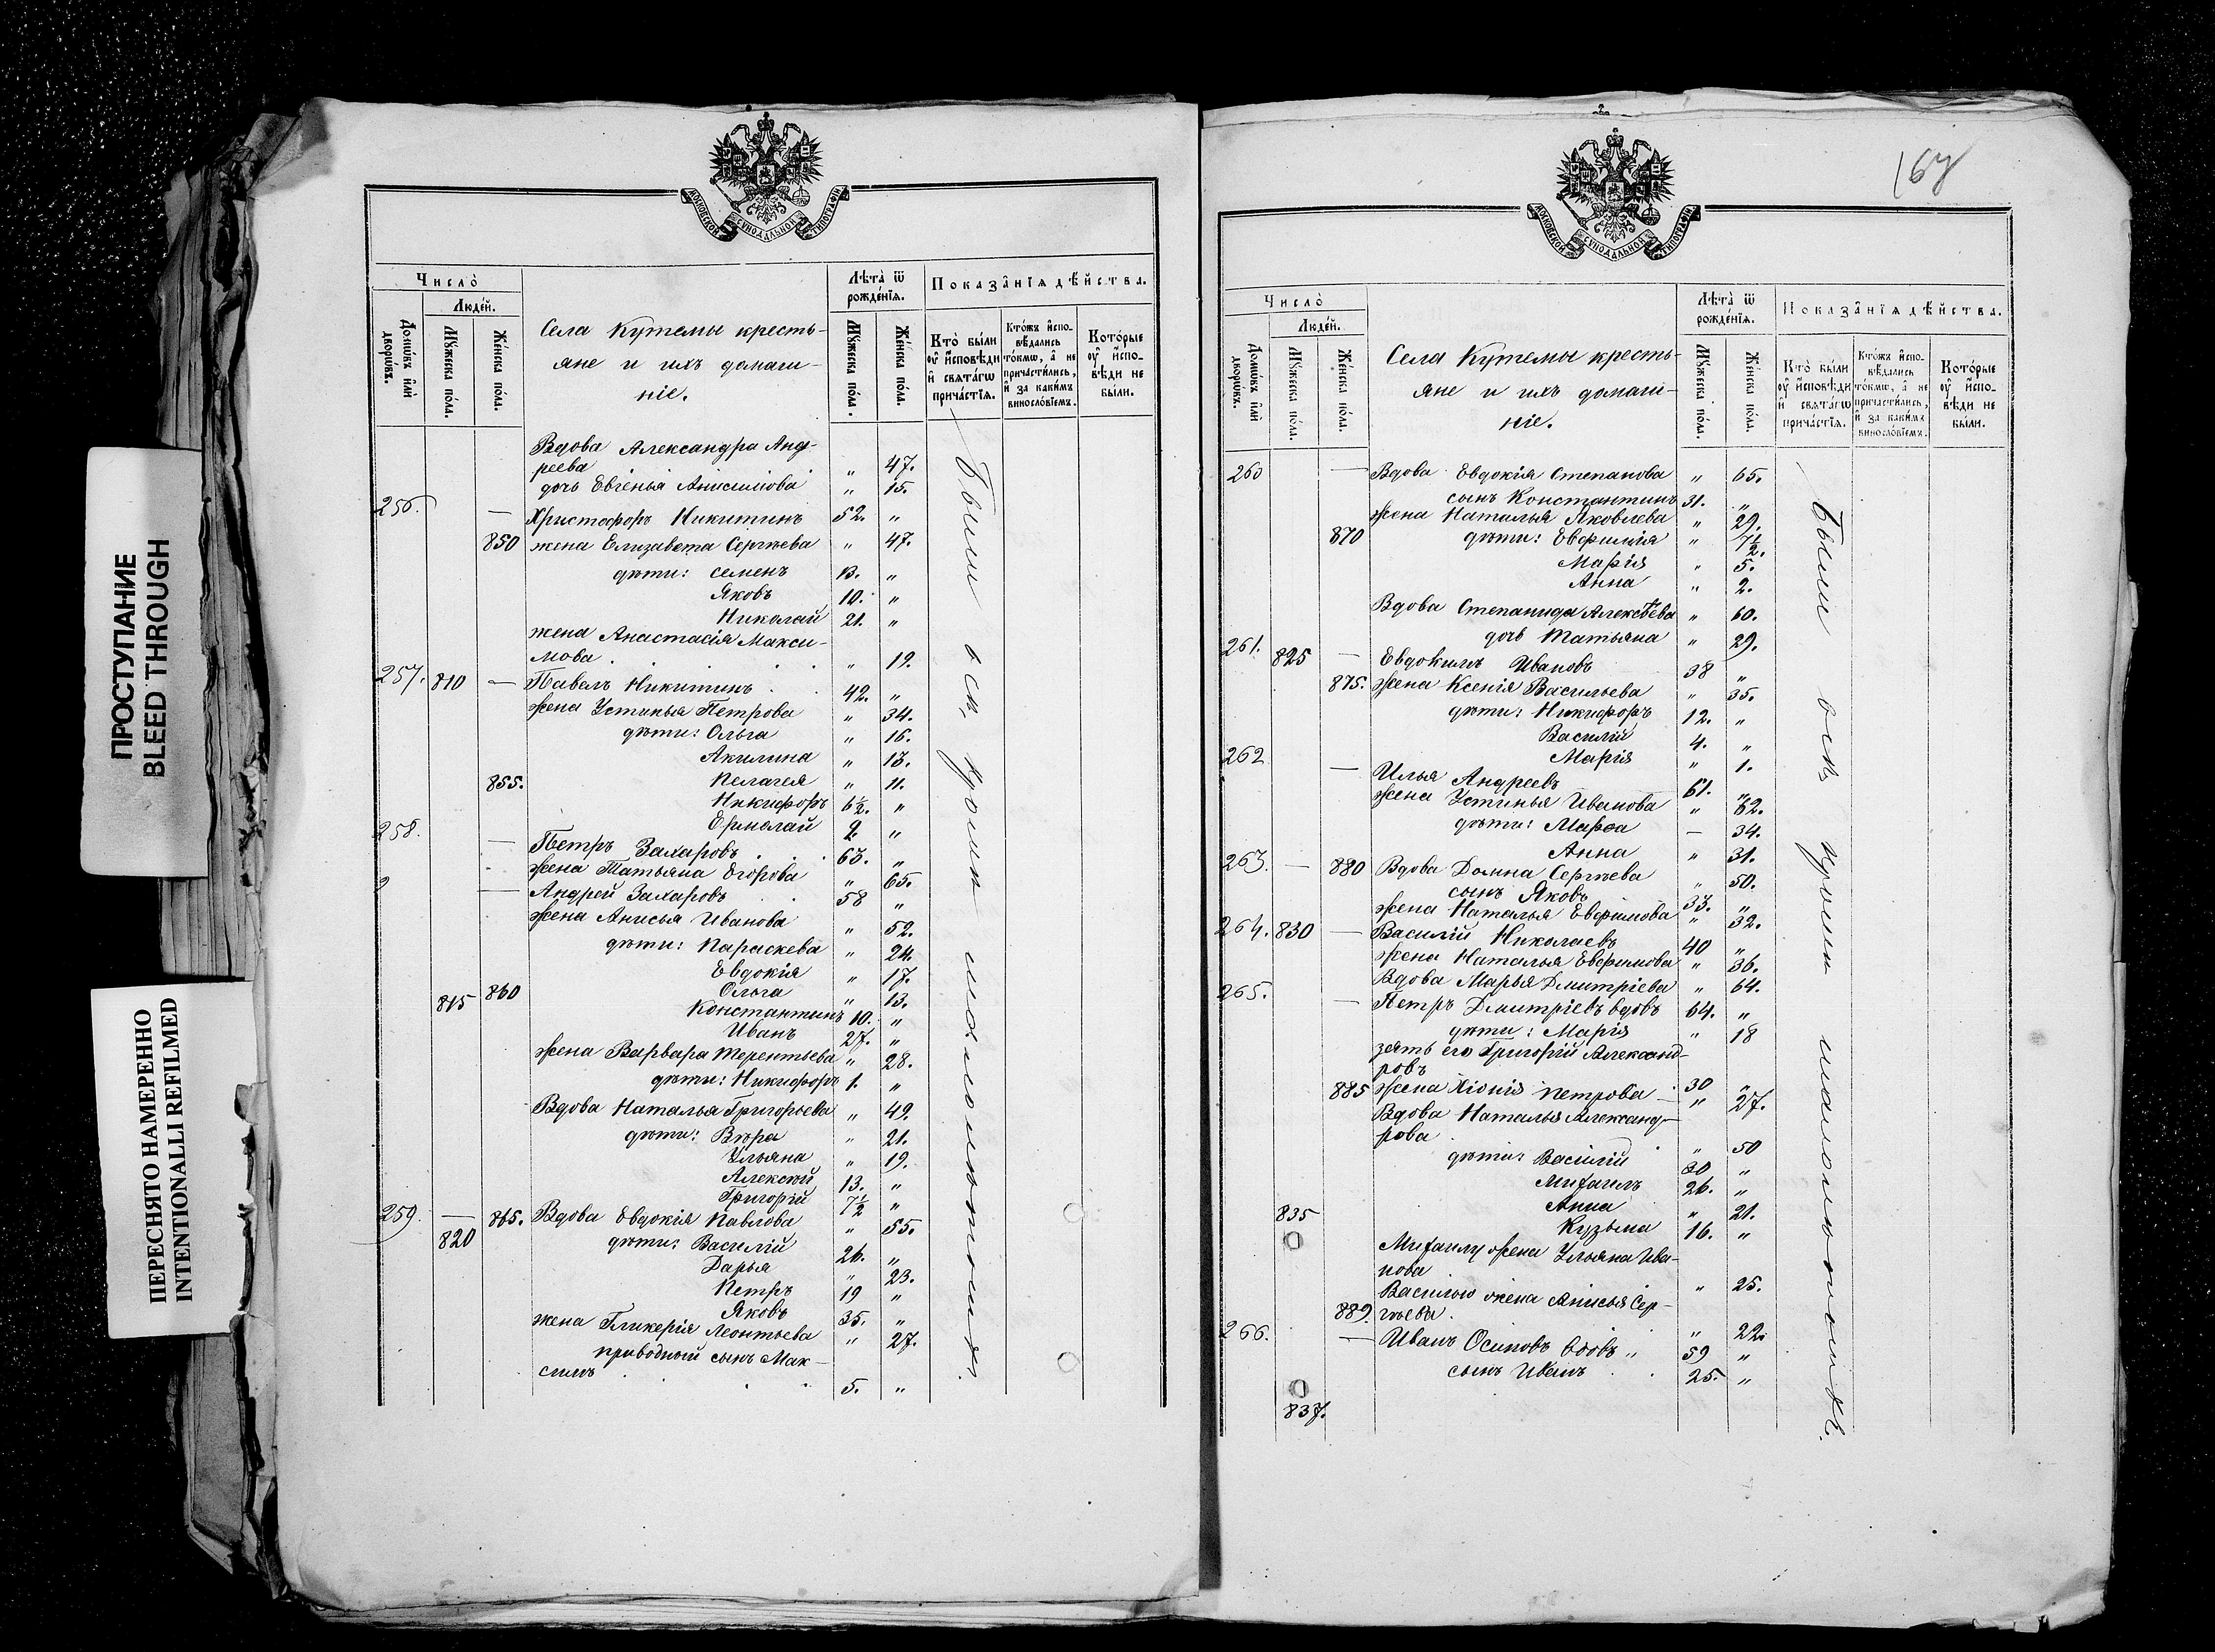 ПРОСТУПАНИЕ
BLEED THROUGH
ПЕРЕСНЯТО НАМЕРЕННО
INTENTIONALLI REFILMED
МОСКОВСКОЙ СѴНОДАЛЬНОЙ ТИПОГРАФІИ
Число̀
Люде́й.
Домѡ́въ и҆лѝ дворѡ́въ.
Мꙋ́жеска по́ла.
Же́нска по́ла.
Села Кутемы кресть-
яне и ихъ домаш-
ніе.
Лѣ́та ѿ рожде́нїѧ.
Мꙋ́жеска по́ла.
Же́нска по́ла.
Показа̑нїѧ дѣ́йства.
Кто̀ бы́ли ᲂу҆ и҆сповѣ́ди и҆ свѧта́гѡ прича́стїѧ.
Кто́жъ и҆сповѣ́дались то́кмѡ, а҆ не причасти́лись, и҆ за каки́мъ винословїемъ.
Кото́рые ᲂу҆ и҆сповѣ́ди не бы́ли.
Вдова Александра Анд-
реева " 47.
дочь Евгенья Анисимова " 15.
256. — Христофоръ Никитинъ 52. "
850 жена Елизавета Сергѣева " 47.
дѣти: Семенъ 13. "
Яковъ 10. "
Николай 21. "
жена Анастасія Макси-
мова " 19.
257. 810 — Павелъ Никитинъ 42. "
жена Устинья Петрова " 34.
дѣти: Ольга " 16.
Акилина " 13.
855. Пелагея " 11.
Никифоръ 6½. "
Ермолай 2. "
258. — Петръ Захаровъ 63. "
жена Татьяна Егорова " 65.
— Андрей Захаровъ 58 "
жена Анисья Иванова " 52.
дѣти: Параскева " 24.
Евдокія " 17.
815 860 Ольга " 13.
Константинъ 10. "
Иванъ 27. "
жена Варвара Терентьева " 28.
дѣти: Никифоръ 1. "
Вдова Наталья Григорьева " 49.
дѣти: Вѣра " 21.
Ульяна " 19.
Алексѣй 13. "
Григорій 7½ "
259. — 865. Вдова Евдокія Павлова " 55.
820 дѣти: Василій 26. "
Дарья " 23.
Петръ 19 "
Яковъ 35. "
жена Гликерія Леонтьева " 27.
приводный сынъ Мак-
симъ 5. "
Были вси, кромѣ малолѣтнихъ.
МОСКОВСКОЙ СѴНОДАЛЬНОЙ ТИПОГРАФІИ
Число̀
Люде́й.
Домѡ́въ и҆лѝ дворѡ́въ.
Мꙋ́жеска по́ла.
Же́нска по́ла.
Села Кутемы кресть-
яне и ихъ домаш-
ніе.
Лѣ́та ѿ рожде́нїѧ.
Мꙋ́жеска по́ла.
Же́нска по́ла.
Показа̑нїѧ дѣ́йства.
Кто̀ бы́ли ᲂу҆ и҆сповѣ́ди и҆ свѧта́гѡ прича́стїѧ.
Кто́жъ и҆сповѣ́дались то́кмѡ, а҆ не причасти́лись, и҆ за каки́мъ винословїемъ.
Кото́рые ᲂу҆ и҆сповѣ́ди не бы́ли.
260 — Вдова Евдокія Степанова " 65.
сынъ Константинъ 31. "
жена Наталья Яковлева " 29.
870 дѣти: Евфимія " 7½.
Марія " 5.
Анна " 2.
Вдова Степанида Алексѣева " 60.
дочь Татьяна " 29.
261. 825 — Евдокимъ Ивановъ 38 "
875. жена Ксенія Васильева " 35.
дѣти: Никифоръ 12. "
Василій 4. "
Марія " 1.
262 — Илья Андреевъ 61. "
жена Устинья Иванова " 62.
дѣти: Марѳа — 34.
Анна " 31.
263. — 880 Вдова Домна Сергѣева " 50.
сынъ Яковъ 33. "
жена Наталья Евфимова " 32.
264. 830 — Василій Николаевъ 40 "
жена Наталья Евфимова " 36.
Вдова Марья Дмитріева " 64.
265. — Петръ Дмитріевъ вдовъ 64. "
дѣти: Марія " 18
зять его Григорій Александ-
ровъ 30 "
885 жена Хіонія Петрова — " 27.
Вдова Наталья Александ-
рова " 50
дѣти: Василій 30 "
Михаилъ 26. "
Анна " 21.
835 Кузьма 16. "
Михаилу жена Ульяна Ива-
нова " 25.
Василью жена Анисья Сер-
889. гѣева. " 22.
266. — Иванъ Осиповъ вдовъ 59 "
сынъ Иванъ 25. "
837.
Были вси, кромѣ малолѣтнихъ.